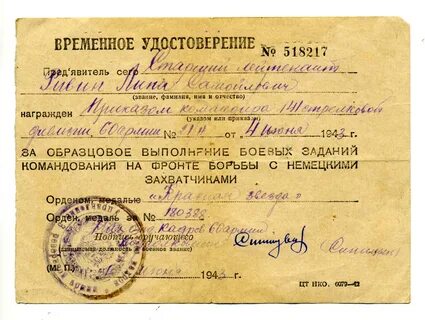 ВРЕМЕННОЕ УДОСТОВЕРЕНИЕ № 518217
Пред'явитель сего Старший лейтенант
Самойлович
(звание, фамилия, имя и отчество)
награжден Приказом командира 141 стрелковой
(указом или приказом)
дивизии 60 армии № от 4 июня 1943 г.
ЗА ОБРАЗЦОВОЕ ВЫПОЛНЕНИЕ БОЕВЫХ ЗАДАНИЙ
КОМАНДОВАНИЯ НА ФРОНТЕ БОРЬБЫ С НЕМЕЦКИМИ
ЗАХВАТЧИКАМИ
Орденом, медалью „Красная звезда"
Орден, медаль за №
кадров 60 армии
Подпись вручающего
(занимаемая должность и военное звание)
(М. П.) июня 1943 г.
ЦТ НКО. 6079—42